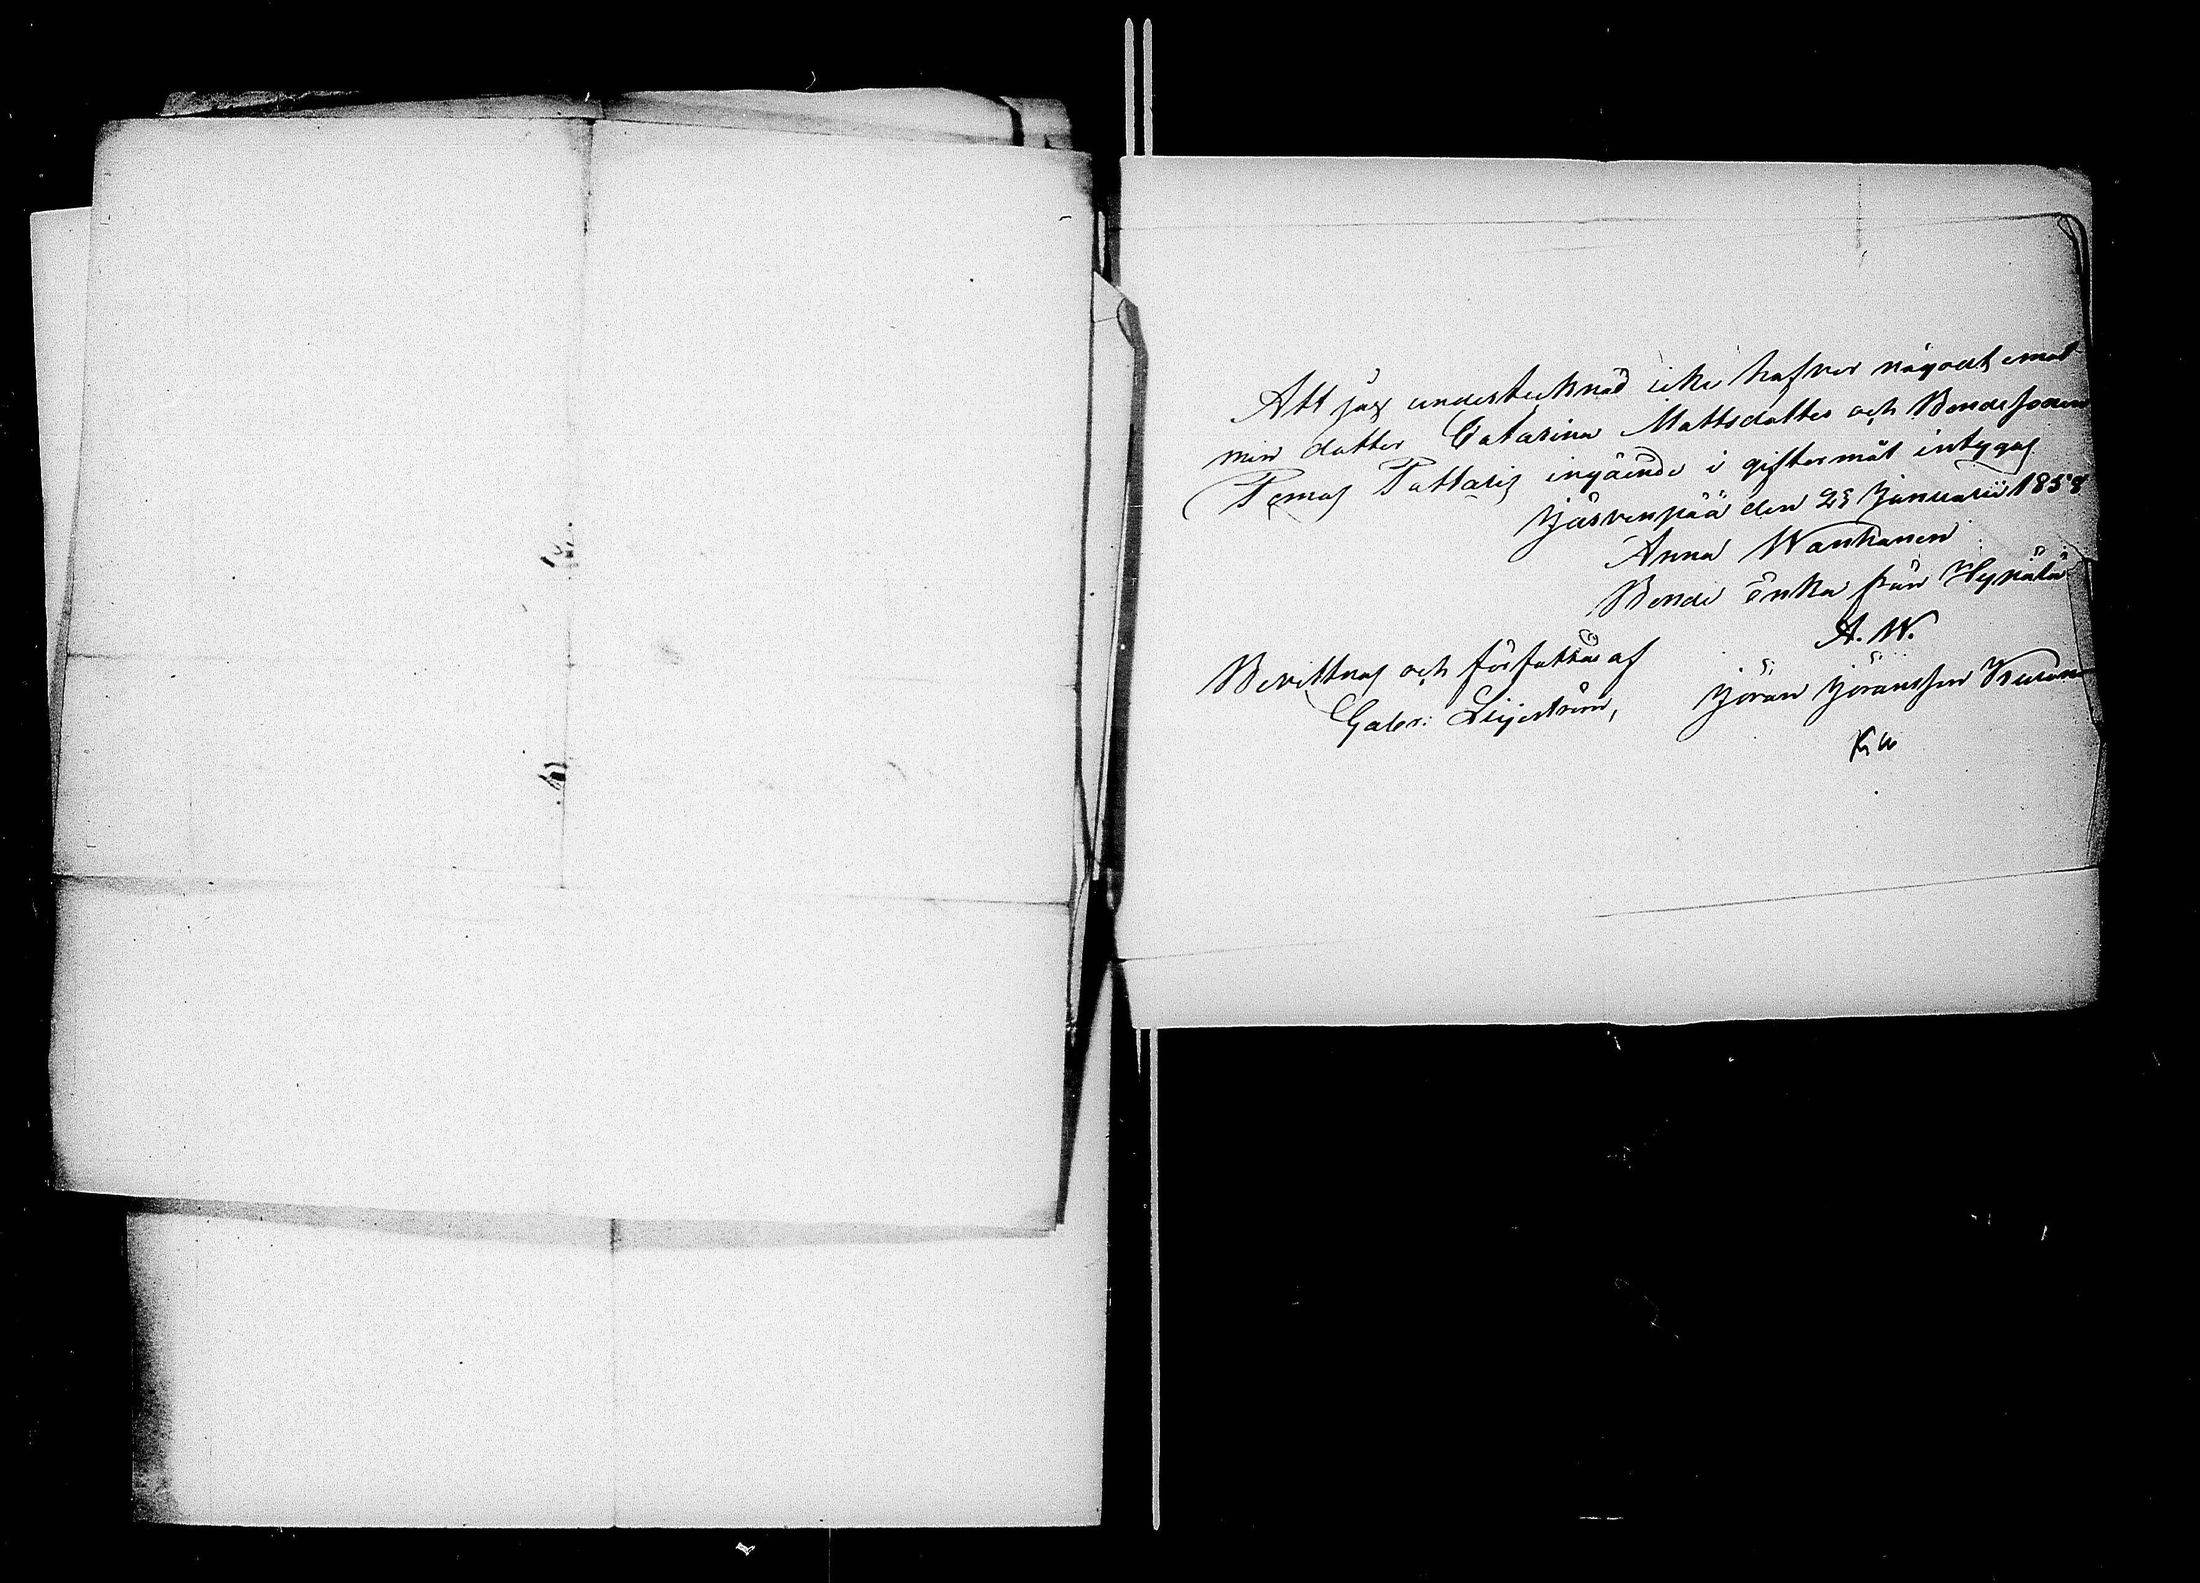 Att jag undertecknad icke hafver någodt emot
min datter Catarina Mattsdatter och Bondesonen
Tomas Pattasig ingående i giftermål intygas
Järvenpää den 23 Januarii 1858
Anna Wanhanen
Bonde änka från Hynälä
A. W.
Berettnas och författas af
Gabr: Liljeström,
Jöran Jöransson